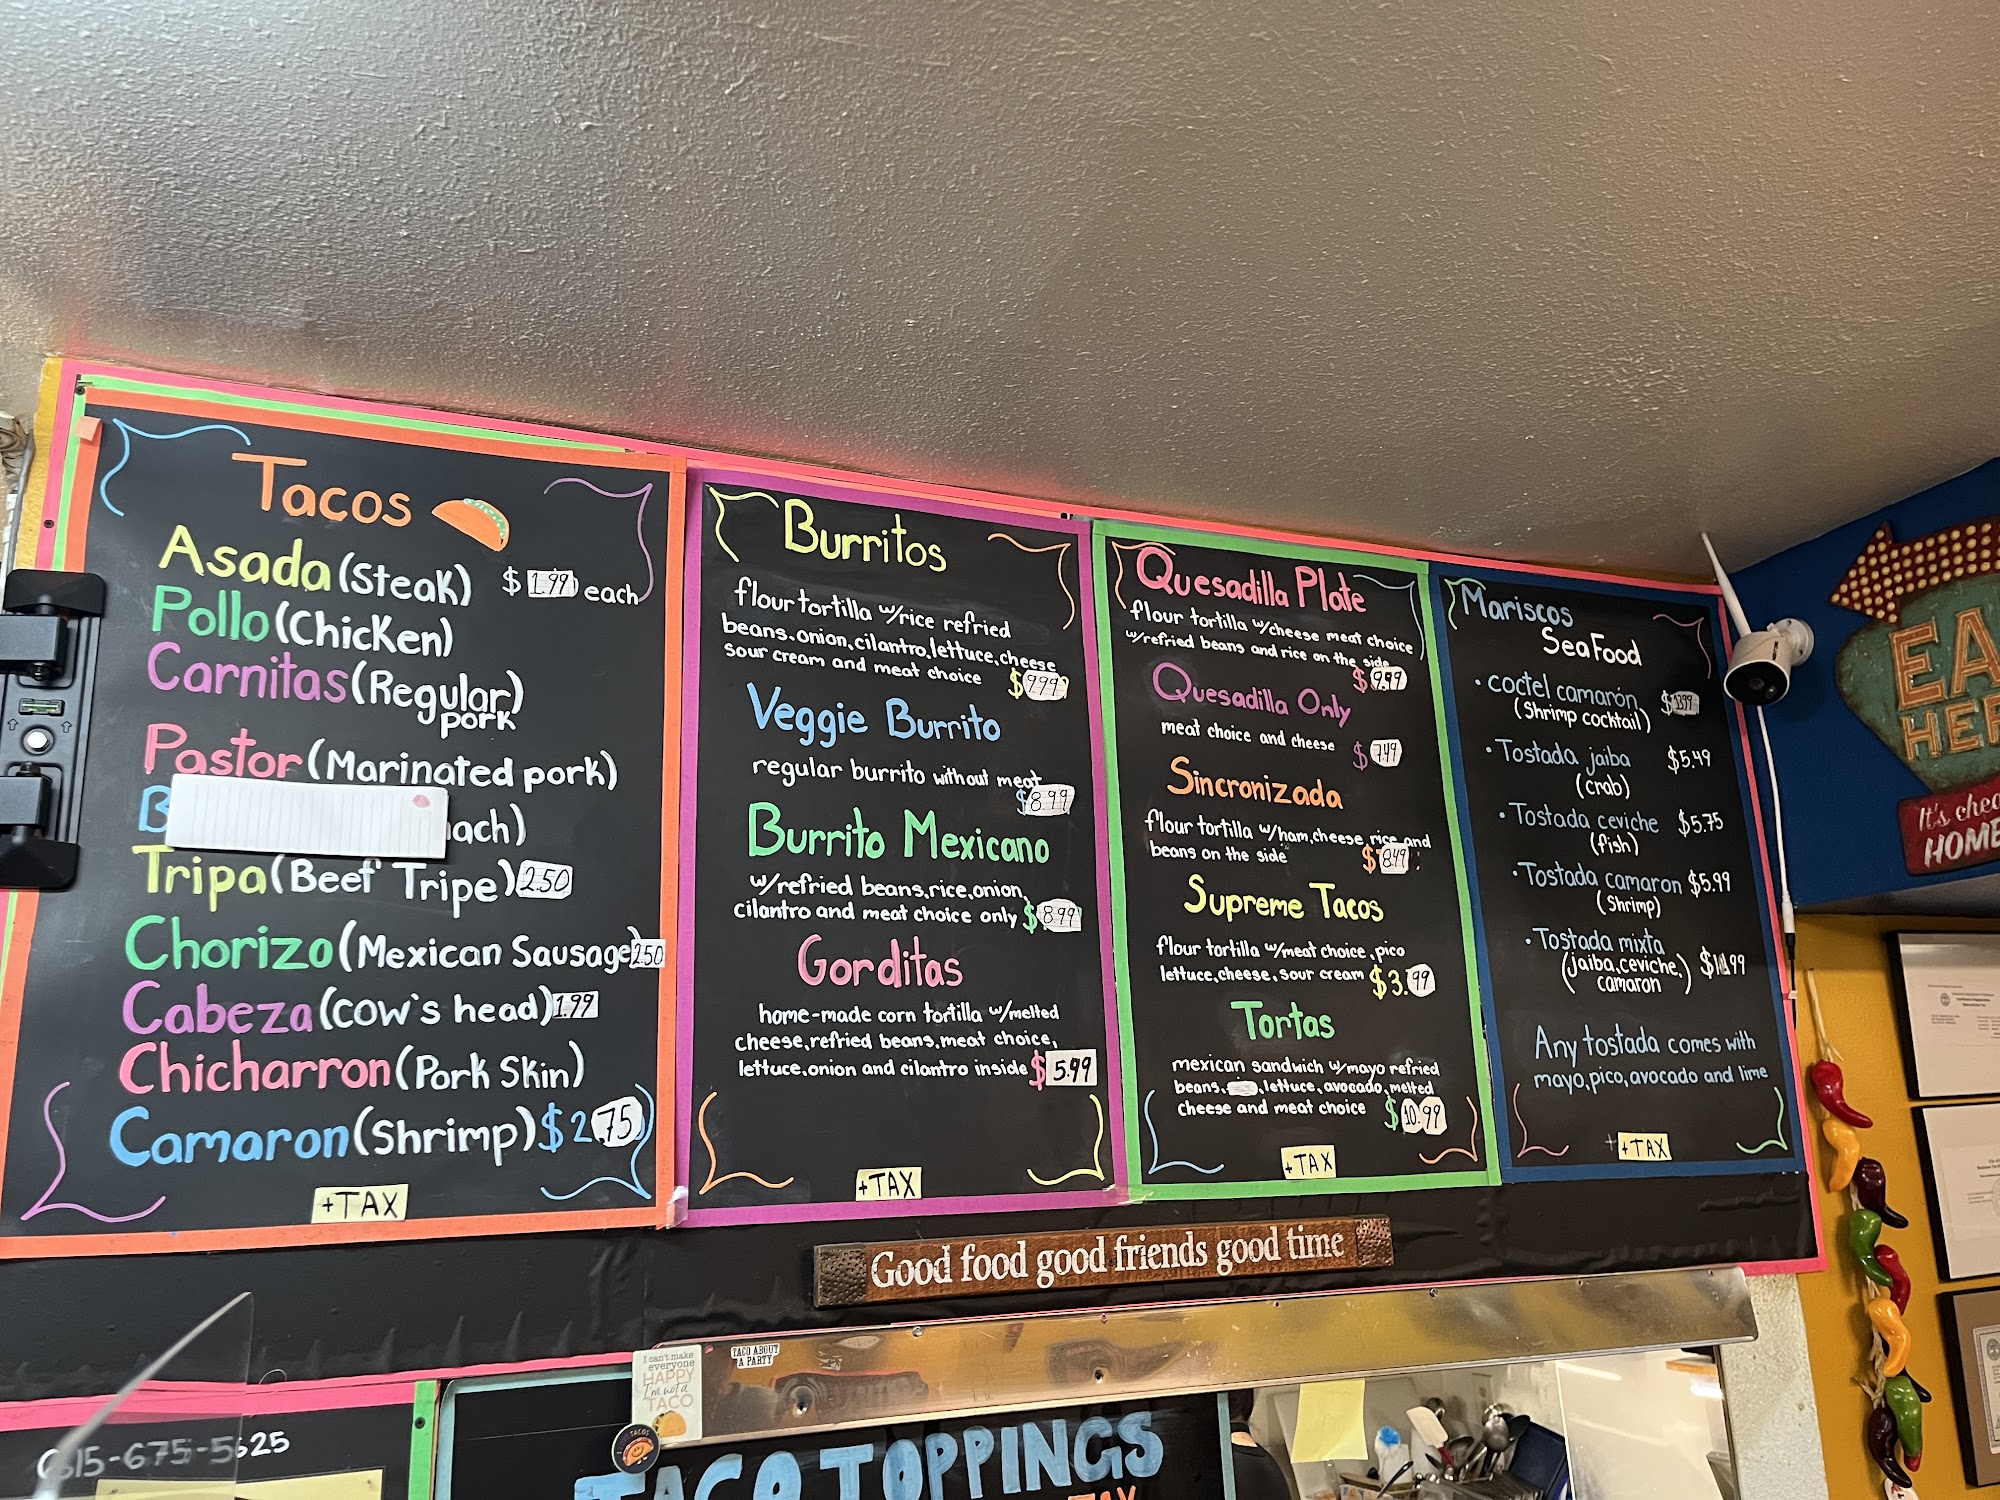 Tacos
Asada (Steak) $1.99 each
Pollo (Chicken)
Carnitas (Regular)
pork
Pastor (Marinated pork)
B ach)
Tripa (Beef Tripe) 2.50
Chorizo (Mexican Sausage) 2.50
Cabeza (cow's head) 1.99
Chicharron (Pork Skin)
Camaron (Shrimp) $2.75
+TAX
Burritos
flour tortilla w/rice refried
beans.onion,cilantro,lettuce,cheese
sour cream and meat choice $9.99
Veggie Burrito
regular burrito without meat
$8.99
Burrito Mexicano
w/refried beans,rice,onion,
cilantro and meat choice only $8.99
Gorditas
home-made corn tortilla w/melted
cheese,refried beans,meat choice,
lettuce,onion and cilantro inside $5.99
+TAX
Quesadilla Plate
flour tortilla w/cheese meat choice
w/refried beans and rice on the side
$9.99
Quesadilla Only
meat choice and cheese $7.49
Sincronizada
flour tortilla w/ham,cheese,rice and
beans on the side $8.49
Supreme Tacos
flour tortilla w/meat choice,pico
lettuce,cheese,sour cream $3.99
Tortas
mexican sandwich w/mayo refried
beans, lettuce, avocado, melted
cheese and meat choice $10.99
+TAX
Mariscos
SeaFood
• coctel camarón
(Shrimp cocktail)
• Tostada jaiba $5.49
(crab)
• Tostada ceviche $5.75
(fish)
• Tostada camaron $5.99
(Shrimp)
• Tostada mixta
(jaiba,ceviche,)
camaron
Any tostada comes with
mayo,pico,avocado and lime
+TAX
EA
HER
It's chea
HOME
Good food good friends good time
I can't make
everyone
HAPPY
I'm not a
TACO
TACO ABOUT
A PARTY
TACOS
615-675-5625
TACO TOPPINGS
TAX